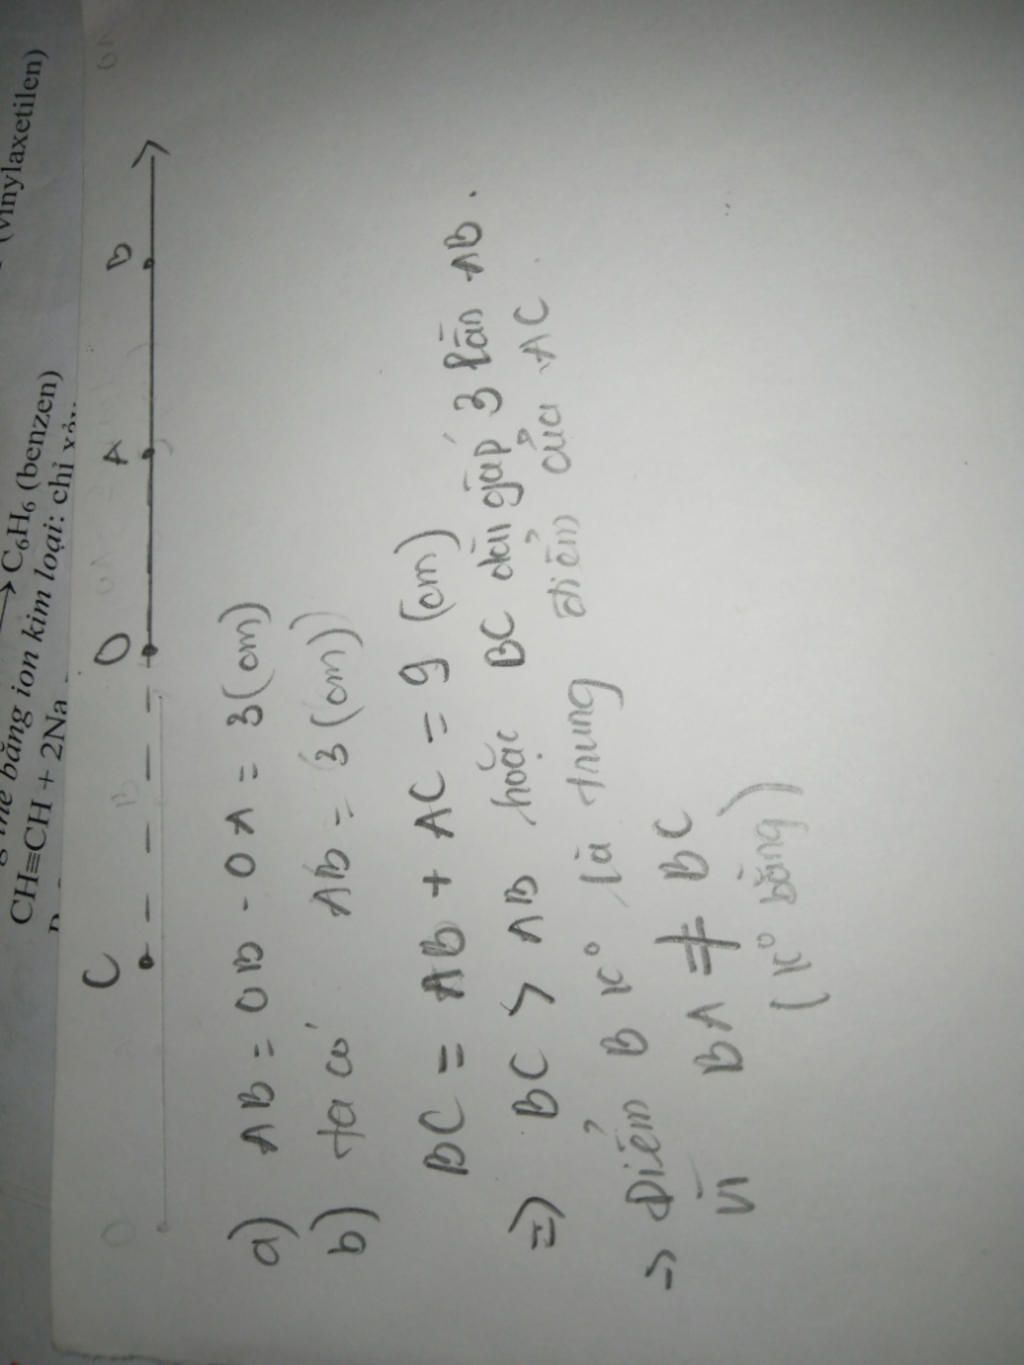 (vinylaxetilen)
C₆H₆ (benzen)
bằng ion kim loại: chỉ xảy
CH≡CH + 2Na
C O A B
a) AB = OB - OA = 3(cm)
b) ta có AB = 3(cm)
BC = AB + AC = 9 (cm)
=> BC > AB hoặc BC dài gấp 3 lần AB.
-> Điểm B kº là trung điểm của AC
vì BA ≠ BC
(kº bằng)